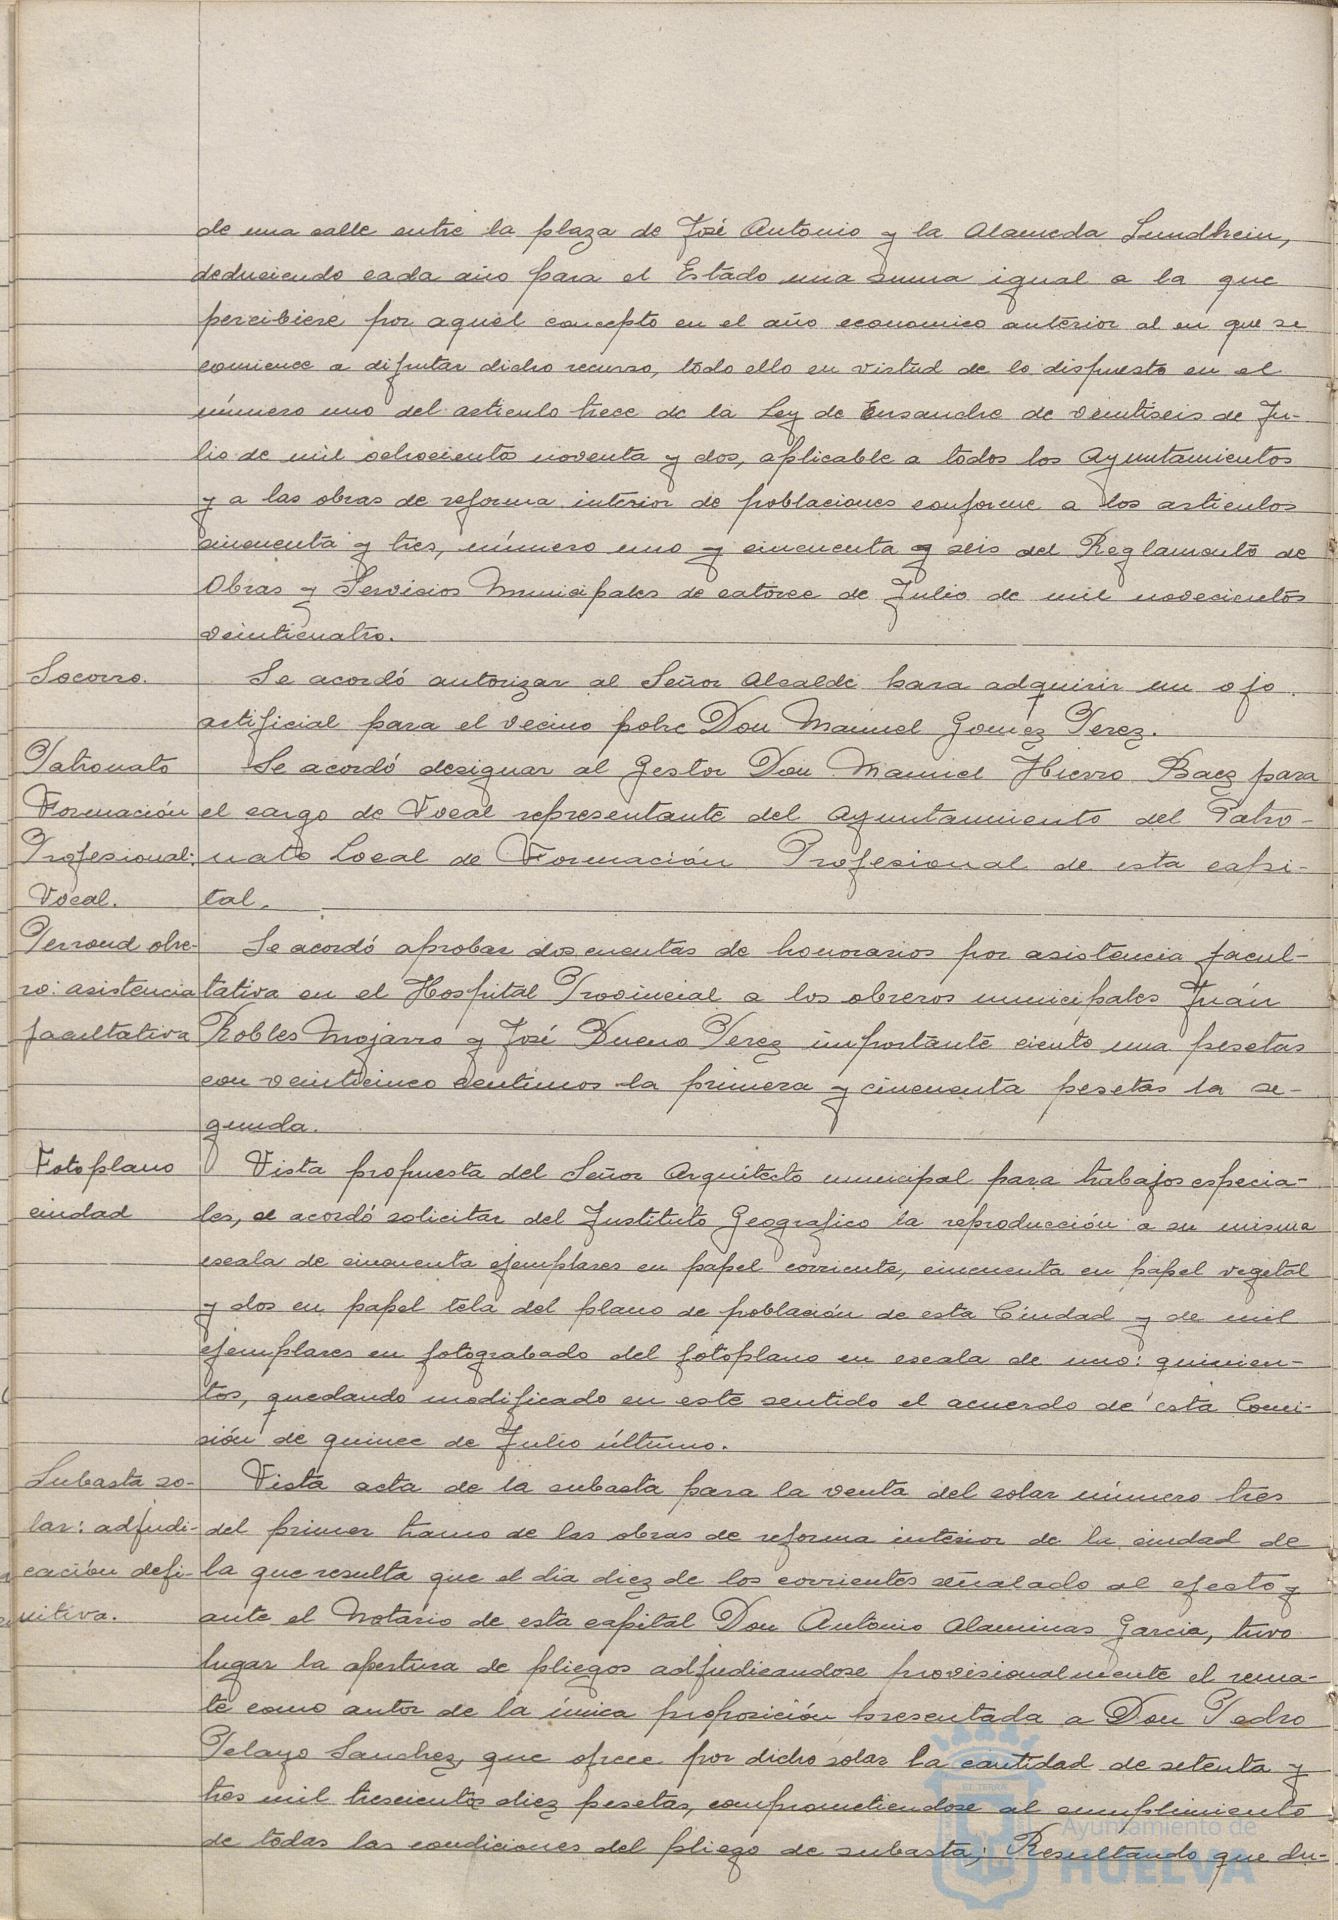 de una calle entre la plaza de José Antonio y la Alameda Sundhein,
deduciendo cada año para el Estado una suma igual a la que
percibiere por aquel concepto en el año economico anterior al en que se
comience a disfrutar dicho recurso, todo ello en virtud de lo dispuesto en el
número uno del articulo trece de la Ley de Ensanche de veintiseis de Ju-
lio de mil ochocientos noventa y dos, aplicable a todos los Ayuntamientos
y a las obras de reforma interior de poblaciones conforme a los articulos
cincuenta y tres, número uno y cincuenta y seis del Reglamento de
Obras y Servicios Municipales de catorce de Julio de mil novecientos
veinticuatro.
Socorro.
Se acordó autorizar al Señor Alcalde para adquirir un ojo
artificial para el vecino pobre Don Manuel Gomez Perez.
Patronato
Formación
Profesional:
Vocal.
Se acordó designar al Gestor Don Manuel Hierro Baez para
el cargo de Vocal representante del Ayuntamiento del Patro-
nato Local de Formación Profesional de esta capi-
tal.
Personal obre-
ro: asistencia
facultativa
Se acordó aprobar dos cuentas de honorarios por asistencia facul-
tativa en el Hospital Provincial a los obreros municipales Juán
Robles Mojarro y José Dueno Perez importante ciento una pesetas
con veinticinco centimos la primera y cincuenta pesetas la se-
gunda.
Fotoplano
ciudad
Vista propuesta del Señor Arquitecto municipal para trabajos especia-
les, se acordó solicitar del Instituto Geografico la reproducción a su misma
escala de cincuenta ejemplares en papel corriente, cincuenta en papel vegetal
y dos en papel tela del plano de población de esta Ciudad y de mil
ejemplares en fotograbado del fotoplano en escala de uno: quinien-
tos, quedando modificado en este sentido el acuerdo de esta Comi-
sión de quince de Julio último.
Subasta so-
lar: adjudi-
cación defi-
nitiva.
Vista acta de la subasta para la venta del solar número tres
del primer tramo de las obras de reforma interior de la ciudad de
la que resulta que el dia diez de los corrientes señalado al efecto y
ante el Notario de esta capital Don Antonio Alaminas Garcia, tuvo
lugar la apertura de pliegos adjudicandose provisionalmente el rema-
te como autor de la única proposición presentada a Don Pedro
Pelayo Sanchez, que ofrece por dicho solar la cantidad de setenta y
tres mil trescientos diez pesetas, comprometiendose al cumplimiento
de todas las condiciones del pliego de subasta; Resultando que du-
Ayuntamiento de
HUELVA